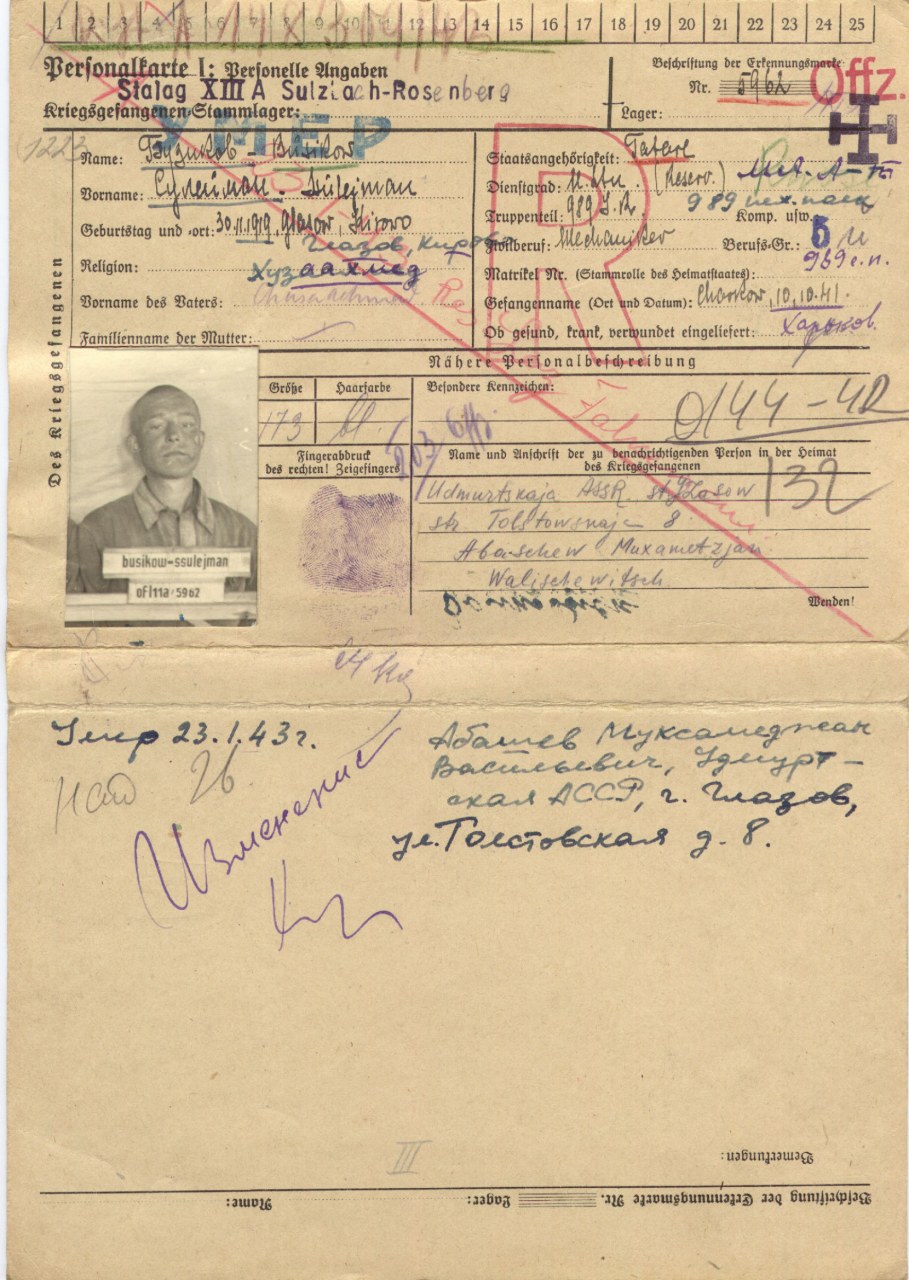 1 2 3 4 5 6 7 8 9 10 11 12 13 14 15 16 17 18 19 20 21 22 23 24 25
Personalkarte I: Personelle Angaben
Beschriftung der Erkennungsmarke
Stalag XIII A Sulzbach-Rosenberg
Nr. 5962 Offz.
Kriegsgefangenen-Stammlager:
Lager:
УМЕР
R
Des Kriegsgefangenen
Name: Бузиков - Busikow
Vorname: Сулейман - Ssulejman
Geburtstag und -ort: 30.11.1919, Glasow, Kirowo
Глазов, Кирово
Religion:
Хузаахмед
Vorname des Vaters: Chusachmed
Familienname der Mutter:
Staatsangehörigkeit: Tatare
Dienstgrad: (Reserv.) мл. л-т
Truppenteil: 989 I.R. 989 пех. полк Komp. usw.
Zivilberuf: Mechaniker Berufs-Gr.: 5
969 с.п.
Matrikel Nr. (Stammrolle des Heimatstaates):
Gefangenname (Ort und Datum): Charkow, 10.10.41.
Ob gesund, krank, verwundet eingeliefert: Харьков.
Nähere Personalbeschreibung
Größe Haarfarbe Besondere Kennzeichen:
173 bl.
0144-42
Fingerabdruck
des rechten! Zeigefingers
Name und Anschrift der zu benachrichtigenden Person in der Heimat
des Kriegsgefangenen
132
Udmurtskaja ASSR. st. Glasow
str. Tolstowskaja 8
Abaschew Muxametzjan
Walischewitsch
Wenden!
busikow-ssulejman
ofl11a·5962
Умер 23.1.43 г.
Абашев Муксамеджан
Васильевич, Удмурт-
ская АССР, г. Глазов,
ул. Толстовская д. 8.
Изменение
III
Bemerkungen:
Beschriftung der Erkennungsmarke Nr. Lager: Name: